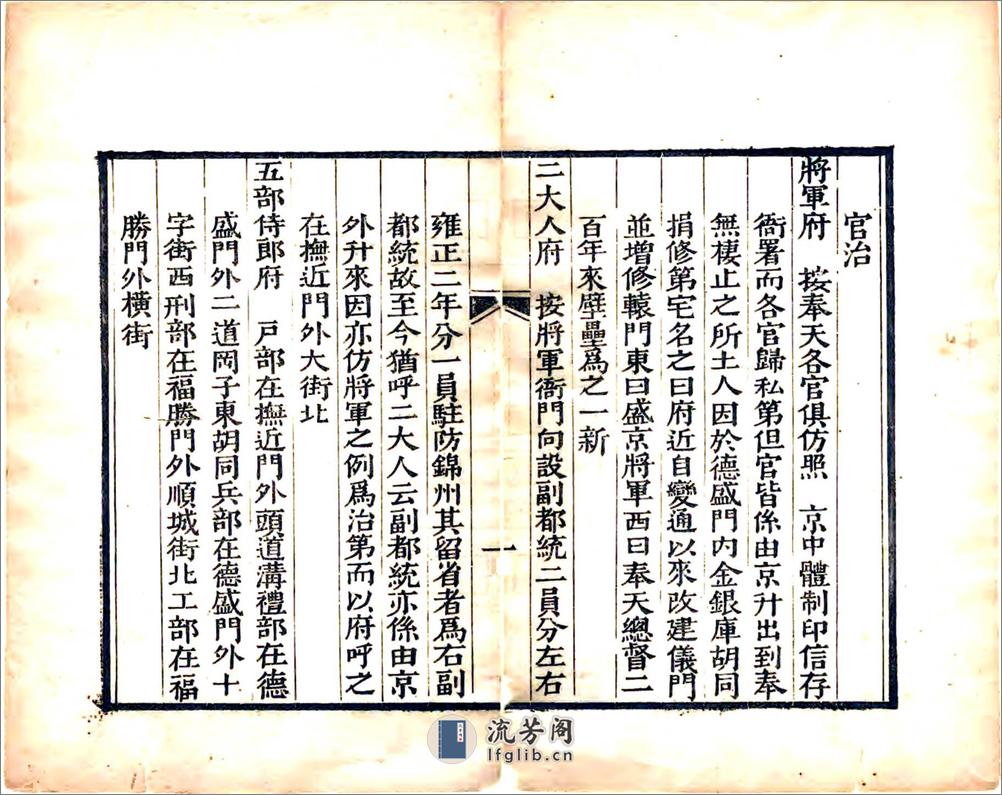 官治
將軍府　按奉天各官俱仿照　京中體制印信存
衙署而各官歸私第但官皆係由京升出到奉
無棲止之所土人因於德盛門內金銀庫胡同
捐修第宅名之曰府近自變通以來改建儀門
並增修轅門東曰盛京將軍西曰奉天總督二
百年來壁壘爲之一新
二大人府　按將軍衙門向設副都統二員分左右
一
雍正二年分一員駐防錦州其留省者爲右副
都統故至今猶呼二大人云副都統亦係由京
外升來因亦仿將軍之例爲治第而以府呼之
在撫近門外大街北
五部侍郎府　戶部在撫近門外頭道溝禮部在德
盛門外二道岡子東胡同兵部在德盛門外十
字街西刑部在福勝門外順城街北工部在福
勝門外橫街
流芳阁
lfglib.cn